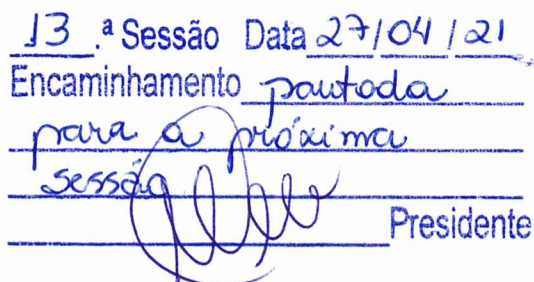 13.ª Sessão Data 27/04/21
Encaminhamento pautada
para a próxima
sessão
Presidente